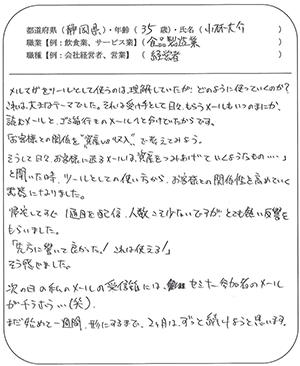 都道府県（静岡県）・年齢（35歳）・氏名（小林大介）
職業【例：飲食業、サービス業】（食品製造業）
職種【例：会社経営者、営業】（経営者）
メルマガをツールとして使うのは理解していたが、どのように使っていくのか？
これは、大きなテーマでした。それは受け手として日々、もらうメールもいつのまにか、
読むメールと、ゴミ箱行きのメールに分けていたからです。
「お客様との関係を"資産or リスト"で考えてみよう。
そうして日々、お客様に送るメールは資産をつみあげていくようなもの…」
と聞いた時、ツールとしての使い方から、お客様との関係性を高めていく
武器になりました。
帰宅してすぐ1通目を配信、人数こそ少ないですがとても熱い反響を
もらいました。
「先方に響いて良かった！これは使える！」
そう感じました。
次の日の私のメールの受信箱には、セミナー参加者のメール
がチラホラ…（笑）
まだ始めて一週間、形にするまで、2ヶ月は、ずっと続けようと思います。